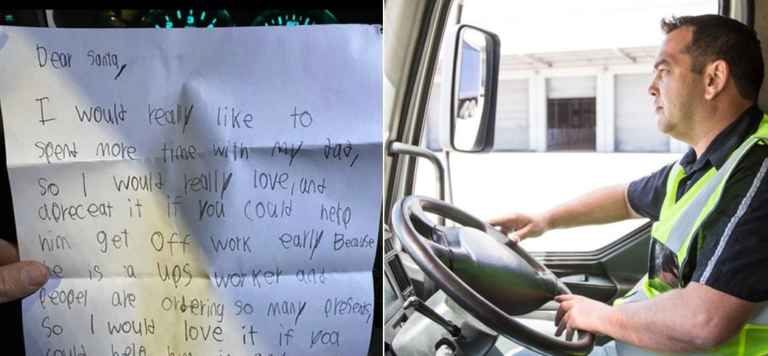 Dear Santa,
I would really like to
spent more time with my dad,
so I would really love, and
apreceat it if you could help
him get off work early Because
he is a ups worker and
peopel are ordering so many presents,
So I would love it if you
could help him